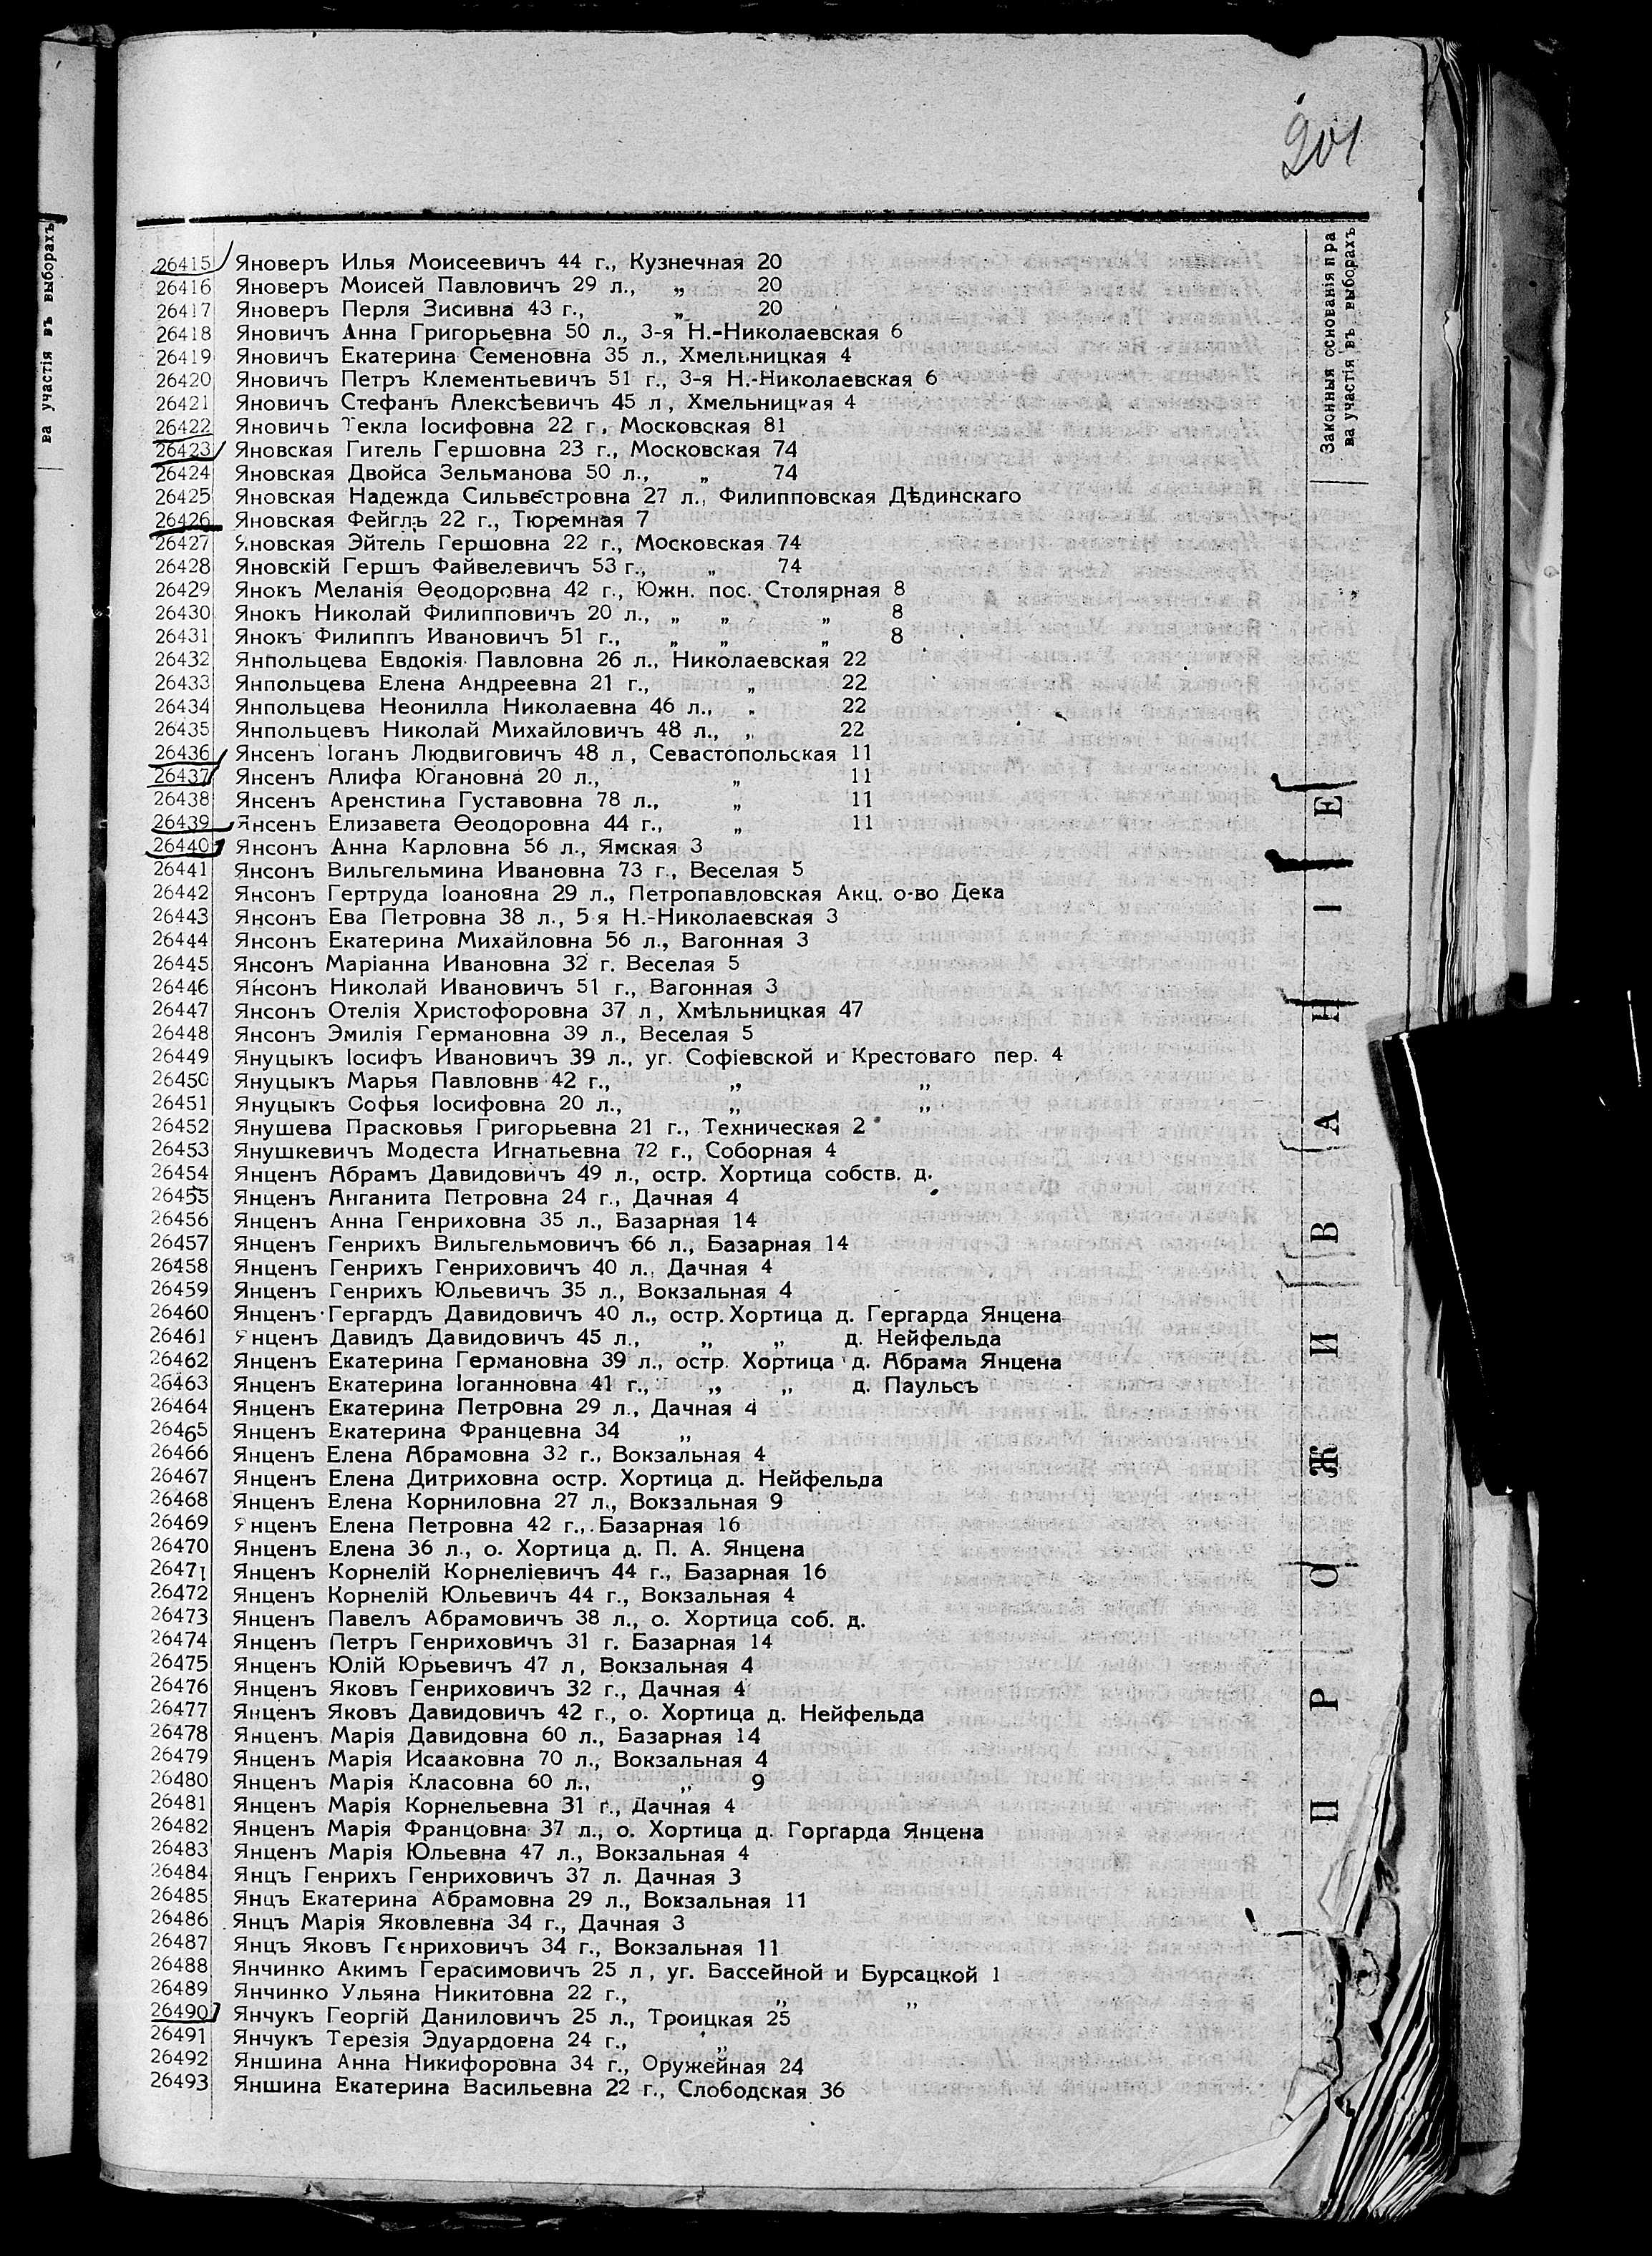 201
ва участія въ выборахъ
Законныя основанія пра
ва участія въ выборахъ
26415 Яноверъ Илья Моисеевичъ 44 г., Кузнечная 20
26416 Яноверъ Моисей Павловичъ 29 л., „ 20
26417 Яноверъ Перля Зисивна 43 г., „ 20
26418 Яновичъ Анна Григорьевна 50 л., 3-я Н.-Николаевская 6
26419 Яновичъ Екатерина Семеновна 35 л., Хмельницкая 4
26420 Яновичъ Петръ Клементьевичъ 51 г., 3-я Н.-Николаевская 6
26421 Яновичъ Стефанъ Алексѣевичъ 45 л, Хмельницкая 4
26422 Яновичъ Текла Іосифовна 22 г., Московская 81
26423 Яновская Гитель Гершовна 23 г., Московская 74
26424 Яновская Двойса Зельманова 50 л., „ 74
26425 Яновская Надежда Сильвестровна 27 л., Филипповская Дѣдинскаго
26426 Яновская Фейглъ 22 г., Тюремная 7
26427 Яновская Эйтель Гершовна 22 г., Московская 74
26428 Яновскій Гершъ Файвелевичъ 53 г., „ 74
26429 Янокъ Меланія Ѳеодоровна 42 г., Южн. пос. Столярная 8
26430 Янокъ Николай Филипповичъ 20 л., „ „ „ 8
26431 Янокъ Филиппъ Ивановичъ 51 г., „ „ „ 8
26432 Янпольцева Евдокія Павловна 26 л., Николаевская 22
26433 Янпольцева Елена Андреевна 21 г., „ 22
26434 Янпольцева Неонилла Николаевна 46 л., „ 22
26435 Янпольцевъ Николай Михайловичъ 48 л., „ 22
26436 Янсенъ Іоганъ Людвиговичъ 48 л, Севастопольская 11
26437 Янсенъ Алифа Югановна 20 л., „ 11
26438 Янсенъ Аренстина Густавовна 78 л., „ 11
26439 Янсенъ Елизавета Ѳеодоровна 44 г., „ 11
26440 Янсонъ Анна Карловна 56 л., Ямская 3
26441 Янсонъ Вильгельмина Ивановна 73 г., Веселая 5
26442 Янсонъ Гертруда Іоановна 29 л., Петропавловская Акц. о-во Дека
26443 Янсонъ Ева Петровна 38 л., 5 я Н.-Николаевская 3
26444 Янсонъ Екатерина Михайловна 56 л., Вагонная 3
26445 Янсонъ Маріанна Ивановна 32 г. Веселая 5
26446 Янсонъ Николай Ивановичъ 51 г., Вагонная 3
26447 Янсонъ Отелія Христофоровна 37 л, Хмѣльницкая 47
26448 Янсонъ Эмилія Германовна 39 л., Веселая 5
26449 Януцыкъ Іосифъ Ивановичъ 39 л., уг. Софіевской и Крестоваго пер. 4
26450 Януцыкъ Марья Павловнв 42 г., „ „
26451 Януцыкъ Софья Іосифовна 20 л., „ „
26452 Янушева Прасковья Григорьевна 21 г., Техническая 2
26453 Янушкевичъ Модеста Игнатьевна 72 г., Соборная 4
26454 Янценъ Абрамъ Давидовичъ 49 л., остр. Хортица собств. д.
26455 Янценъ Анганита Петровна 24 г., Дачная 4
26456 Янценъ Анна Генриховна 35 л., Базарная 14
26457 Янценъ Генрихъ Вильгельмовичъ 66 л., Базарная 14
26458 Янценъ Генрихъ Генриховичъ 40 л., Дачная 4
26459 Янценъ Генрихъ Юльевичъ 35 л., Вокзальная 4
26460 Янценъ Гергардъ Давидовичъ 40 л., остр. Хортица д. Гергарда Янцена
26461 Янценъ Давидъ Давидовичъ 45 л., „ „ д. Нейфельда
26462 Янценъ Екатерина Германовна 39 л., остр. Хортица д. Абрама Янцена
26463 Янценъ Екатерина Іоганновна 41 г., „ „ д. Паульсъ
26464 Янценъ Екатерина Петровна 29 л., Дачная 4
26465 Янценъ Екатерина Францевна 34 „
26466 Янценъ Елена Абрамовна 32 г., Вокзальная 4
26467 Янценъ Елена Дитриховна остр. Хортица д. Нейфельда
26468 Янценъ Елена Корниловна 27 л., Вокзальная 9
26469 Янценъ Елена Петровна 42 г., Базарная 16
26470 Янценъ Елена 36 л., о. Хортица д. П. А. Янцена
26471 Янценъ Корнелій Корнеліевичъ 44 г., Базарная 16
26472 Янценъ Корнелій Юльевичъ 44 г., Вокзальная 4
26473 Янценъ Павелъ Абрамовичъ 38 л., о. Хортица соб. д.
26474 Янценъ Петръ Генриховичъ 31 г. Базарная 14
26475 Янценъ Юлій Юрьевичъ 47 л, Вокзальная 4
26476 Янценъ Яковъ Генриховичъ 32 г., Дачная 4
26477 Янценъ Яковъ Давидовичъ 42 г., о. Хортица д. Нейфельда
26478 Янценъ Марія Давидовна 60 л., Базарная 14
26479 Янценъ Марія Исааковна 70 л., Вокзальная 4
26480 Янценъ Марія Класовна 60 л., „ 9
26481 Янценъ Марія Корнельевна 31 г., Дачная 4
26482 Янценъ Марія Францовна 37 л., о. Хортица д. Горгарда Янцена
26483 Янценъ Марія Юльевна 47 л., Вокзальная 4
26484 Янцъ Генрихъ Генриховичъ 37 л. Дачная 3
26485 Янцъ Екатерина Абрамовна 29 л., Вокзальная 11
26486 Янцъ Марія Яковлевна 34 г., Дачная 3
26487 Янцъ Яковъ Генриховичъ 34 г., Вокзальная 11
26488 Янчинко Акимъ Герасимовичъ 25 л, уг. Бассейной и Бурсацкой 1
26489 Янчинко Ульяна Никитовна 22 г., „ „
26490 Янчукъ Георгій Даниловичъ 25 л., Троицкая 25
26491 Янчукъ Терезія Эдуардовна 24 г., „
26492 Яншина Анна Никифоровна 34 г., Оружейная 24
26493 Яншина Екатерина Васильевна 22 г., Слободская 36
ПРОЖИВАНІЕ